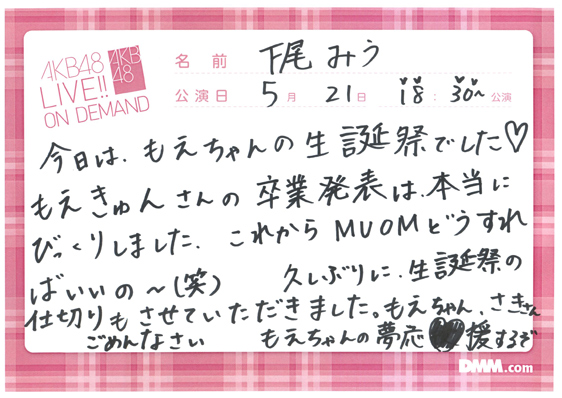 AKB48
LIVE!!
ON DEMAND
AKB
48
名前 下尾みう
公演日 5月 21日 18:30~公演
今日は、もえちゃんの生誕祭でした♡
もえきゅんさんの卒業発表は、本当に
びっくりしました。これからMUOMどうすれ
ばいいの～(笑) 久しぶりに、生誕祭の
仕切りもさせていただきました。もえちゃん、さきさん
ごめんなさい もえちゃんの夢応援するぞ
DMM.com